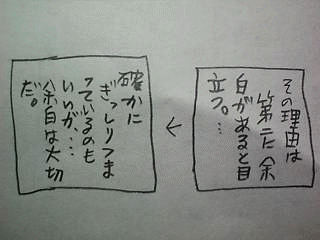 その理由は
第一に余
白があると目
立つ。…
←
確かに
ぎっしりつま
っているのも
いいが、…
余白は大切
だ。